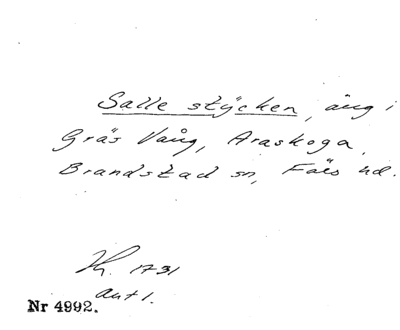 Salle stycken, äng i
Gräs Vång, Araskoga,
Brandstad sn, Färs hd.
Kh. 1731
akt 1.
Nr 4992.